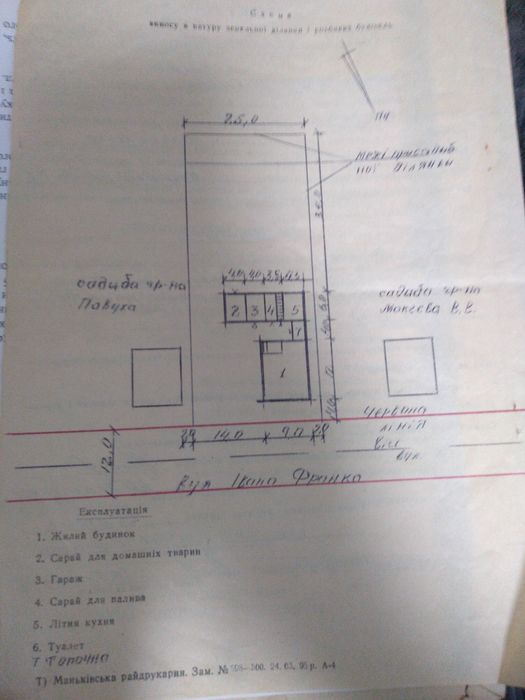 Схема
виносу в натуру земельної ділянки і розбивки будівель
ПН
25,0
межі присадиб
ної ділянки
35,0
4,0 4,0 3,5 4,5
садиба гр-на
Павуха
садиба гр-на
Мокєєва В.Є.
2 3 4 5
7
1
Червона
лінія
вісь
вул.
2,0 14,0 9,0 2,0
12,0
вул Івана Франка
Експлуатація
1. Жилий будинок
2. Сарай для домашніх тварин
3. Гараж
4. Сарай для палива
5. Літня кухня
6. Туалет
7 Топочна
Т) Маньківська райдрукарня. Зам. № 24. 03. 95 р. А-4